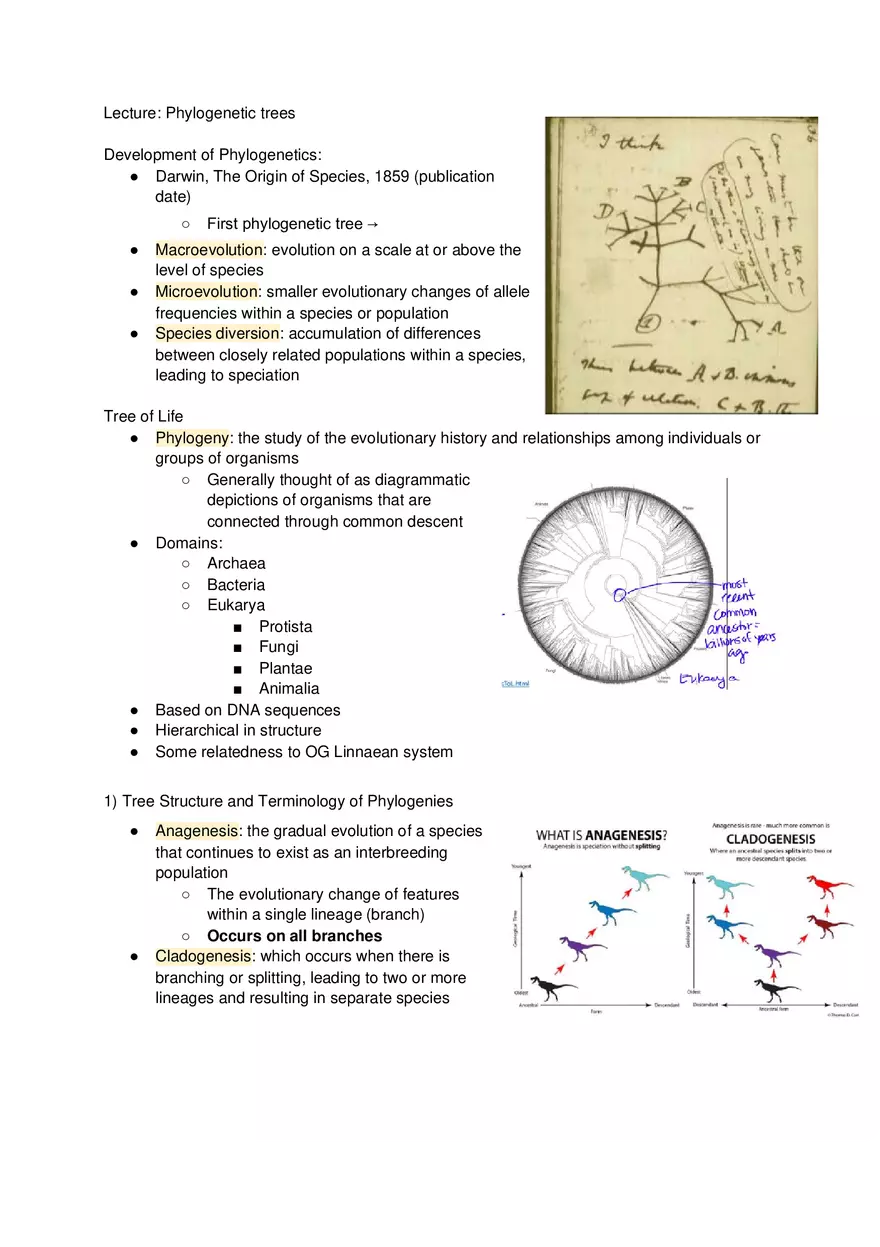 Lecture: Phylogenetic trees
Development of Phylogenetics:
● Darwin, The Origin of Species, 1859 (publication
date)
○ First phylogenetic tree →
● Macroevolution: evolution on a scale at or above the
level of species
● Microevolution: smaller evolutionary changes of allele
frequencies within a species or population
● Species diversion: accumulation of differences
between closely related populations within a species,
leading to speciation
I think
B
C
D
A
1
Thus between A & B.
of relation. C & B.
Tree of Life
● Phylogeny: the study of the evolutionary history and relationships among individuals or
groups of organisms
○ Generally thought of as diagrammatic
depictions of organisms that are
connected through common descent
● Domains:
○ Archaea
○ Bacteria
○ Eukarya
■ Protista
■ Fungi
■ Plantae
■ Animalia
● Based on DNA sequences
● Hierarchical in structure
● Some relatedness to OG Linnaean system
Animals
Plants
most
recent
common
ancestor =
billions of years
ago
Fungi
Eukarya
1) Tree Structure and Terminology of Phylogenies
● Anagenesis: the gradual evolution of a species
that continues to exist as an interbreeding
population
○ The evolutionary change of features
within a single lineage (branch)
○ Occurs on all branches
● Cladogenesis: which occurs when there is
branching or splitting, leading to two or more
lineages and resulting in separate species
WHAT IS ANAGENESIS?
Anagenesis is speciation without splitting
Youngest
Geological Time
Oldest
Ancestral
Descendant
Form
Anagenesis is rare - much more common is
CLADOGENESIS
Where an ancestral species splits into two or
more descendant species
Youngest
Geological Time
Oldest
Descendant
Ancestral form
Descendant